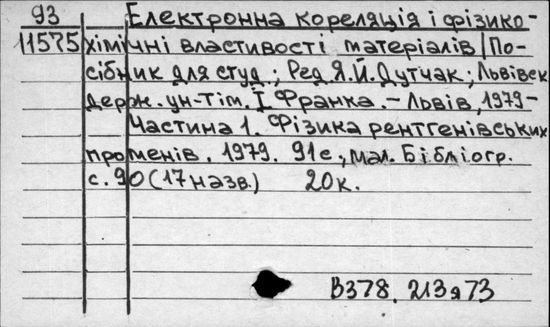 93 Електронна кореляція і фізико-
11575 хімічні властивості матеріалів/По-
сібник для студ.; Ред Я.Й.Дутчак; Львівск
держ. ун-т ім. І Франка. - Львів, 1979-
Частина 1. Фізика рентгенівських
променів. 1979. 91 с., мал. Бібліогр.
с. 90 (17 назв.) 20к.
В378.213я73